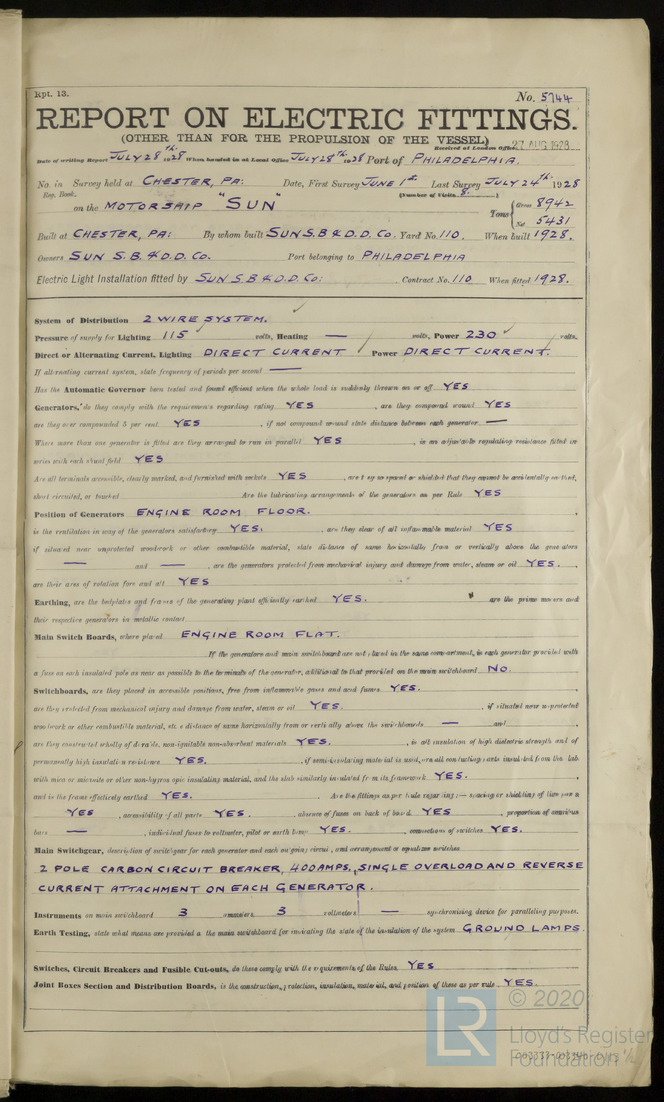 Rpt. 13.
No. 5744
REPORT ON ELECTRIC FITTINGS.
(OTHER THAN FOR THE PROPULSION OF THE VESSEL)
Received at London Office 27 AUG 1928
Date of writing Report JULY 28th 1928 When handed in at Local Office JULY 28th 1928 Port of PHILADELPHIA.
No. in Survey held at CHESTER, PA: Date, First Survey JUNE 1st Last Survey JULY 24th 1928
Reg. Book. (Number of Visits 8)
on the MOTORSHIP "SUN" Tons { Gross 8942
Net 5431
Built at CHESTER, PA: By whom built SUN S.B & D.D. Co. Yard No. 110. When built 1928.
Owners SUN S.B. & D.D. Co. Port belonging to PHILADELPHIA
Electric Light Installation fitted by SUN S.B & D.D. Co: Contract No. 110 When fitted 1928.
System of Distribution 2 WIRE SYSTEM.
Pressure of supply for Lighting 115 volts, Heating — volts, Power 230 volts.
Direct or Alternating Current, Lighting DIRECT CURRENT Power DIRECT CURRENT.
If alternating current system, state frequency of periods per second —
Has the Automatic Governor been tested and found efficient when the whole load is suddenly thrown on or off YES
Generators, do they comply with the requirements regarding rating YES, are they compound wound YES
are they over compounded 5 per cent YES, if not compound wound state distance between each generator —
Where more than one generator is fitted are they arranged to run in parallel YES, is an adjustable regulating resistance fitted in
series with each shunt field YES
Are all terminals accessible, clearly marked, and furnished with sockets YES, are they so spaced or shielded that they cannot be accidentally earthed,
short circuited, or touched Are the lubricating arrangements of the generators as per Rule YES
Position of Generators ENGINE ROOM FLOOR.
is the ventilation in way of the generators satisfactory YES. , are they clear of all inflammable material YES
if situated near unprotected woodwork or other combustible material, state distance of same horizontally from or vertically above the generators
— and —, are the generators protected from mechanical injury and damage from water, steam or oil YES.
are their axes of rotation fore and aft YES
Earthing, are the bedplates and frames of the generating plant efficiently earthed YES. are the prime movers and
their respective generators in metallic contact
Main Switch Boards, where placed ENGINE ROOM FLAT.
If the generators and main switchboard are not placed in the same compartment, is each generator provided with
a fuse on each insulated pole as near as possible to the terminals of the generator, additional to that provided on the main switchboard NO.
Switchboards, are they placed in accessible positions, free from inflammable gases and acid fumes YES.
are they protected from mechanical injury and damage from water, steam or oil YES. , if situated near unprotected
woodwork or other combustible material, state distance of same horizontally from or vertically above the switchboards — and
are they constructed wholly of durable, non-ignitable non-absorbent materials YES. , is all insulation of high dielectric strength and of
permanently high insulation resistance YES. , if semi-insulating material is used, are all conducting parts insulated from the slab
with mica or micanite or other non-hygroscopic insulating material, and the slab similarly insulated from its framework YES.
and is the frame effectively earthed YES. Are the fittings as per Rule regarding :— spacing or shielding of live parts
YES, accessibility of all parts YES, absence of fuses on back of board YES, proportion of omnibus
bars —, individual fuses to voltmeter, pilot or earth lamp YES. , connections of switches YES.
Main Switchgear, description of switchgear for each generator and each outgoing circuit, and arrangement of equaliser switches
2 POLE CARBON CIRCUIT BREAKER, 400 AMPS, SINGLE OVERLOAD AND REVERSE
CURRENT ATTACHMENT ON EACH GENERATOR.
Instruments on main switchboard 3 ammeters 3 voltmeters — synchronising device for paralleling purposes.
Earth Testing, state what means are provided at the main switchboard for indicating the state of the insulation of the system GROUND LAMPS.
Switches, Circuit Breakers and Fusible Cut-outs, do these comply with the requirements of the Rules YES
Joint Boxes Section and Distribution Boards, is the construction, protection, insulation, material, and position of these as per rule YES.
© 2020
LR Lloyd's Register
Foundation